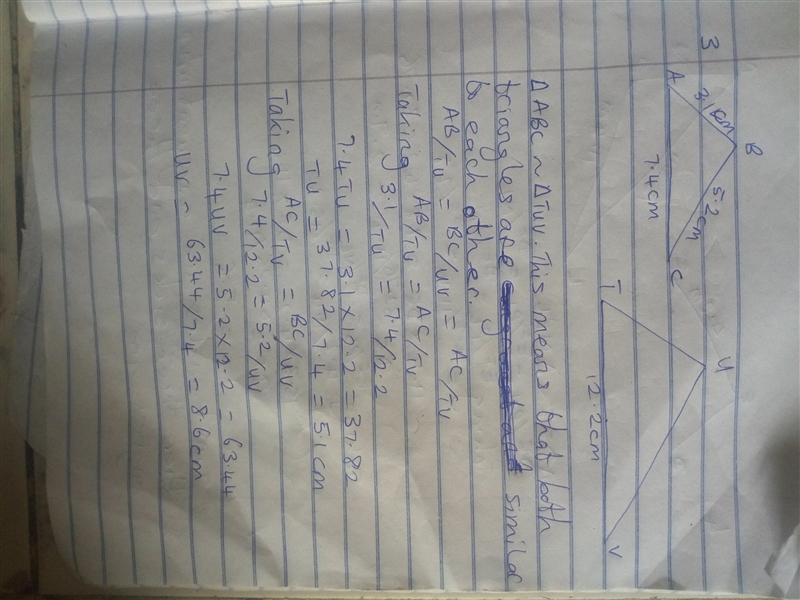 3
B
U
3.1cm
5.2cm
A
7.4cm
C
T
12.2cm
V
△ABC ~ △TUV. This means that both
triangles are similar
to each other.
AB/TU = BC/UV = AC/TV
Taking AB/TU = AC/TV
3.1/TU = 7.4/12.2
7.4TU = 3.1×12.2 = 37.82
TU = 37.82/7.4 = 5.1cm
Taking AC/TV = BC/UV
7.4/12.2 = 5.2/UV
7.4UV = 5.2×12.2 = 63.44
UV = 63.44/7.4 = 8.6cm